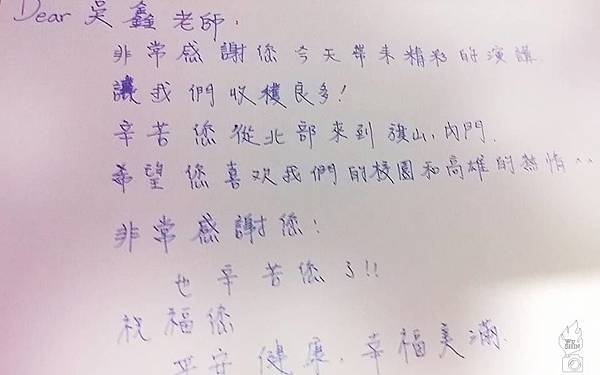 Dear 吳鑫老師:
非常感謝您今天帶來精彩的演講
讓我們收穫良多!
辛苦您從北部來到旗山,內門.
希望您喜欢我們的校園和高雄的熱情^^
非常感謝您!
也辛苦您了!!
祝福您
平安健康,幸福美滿.